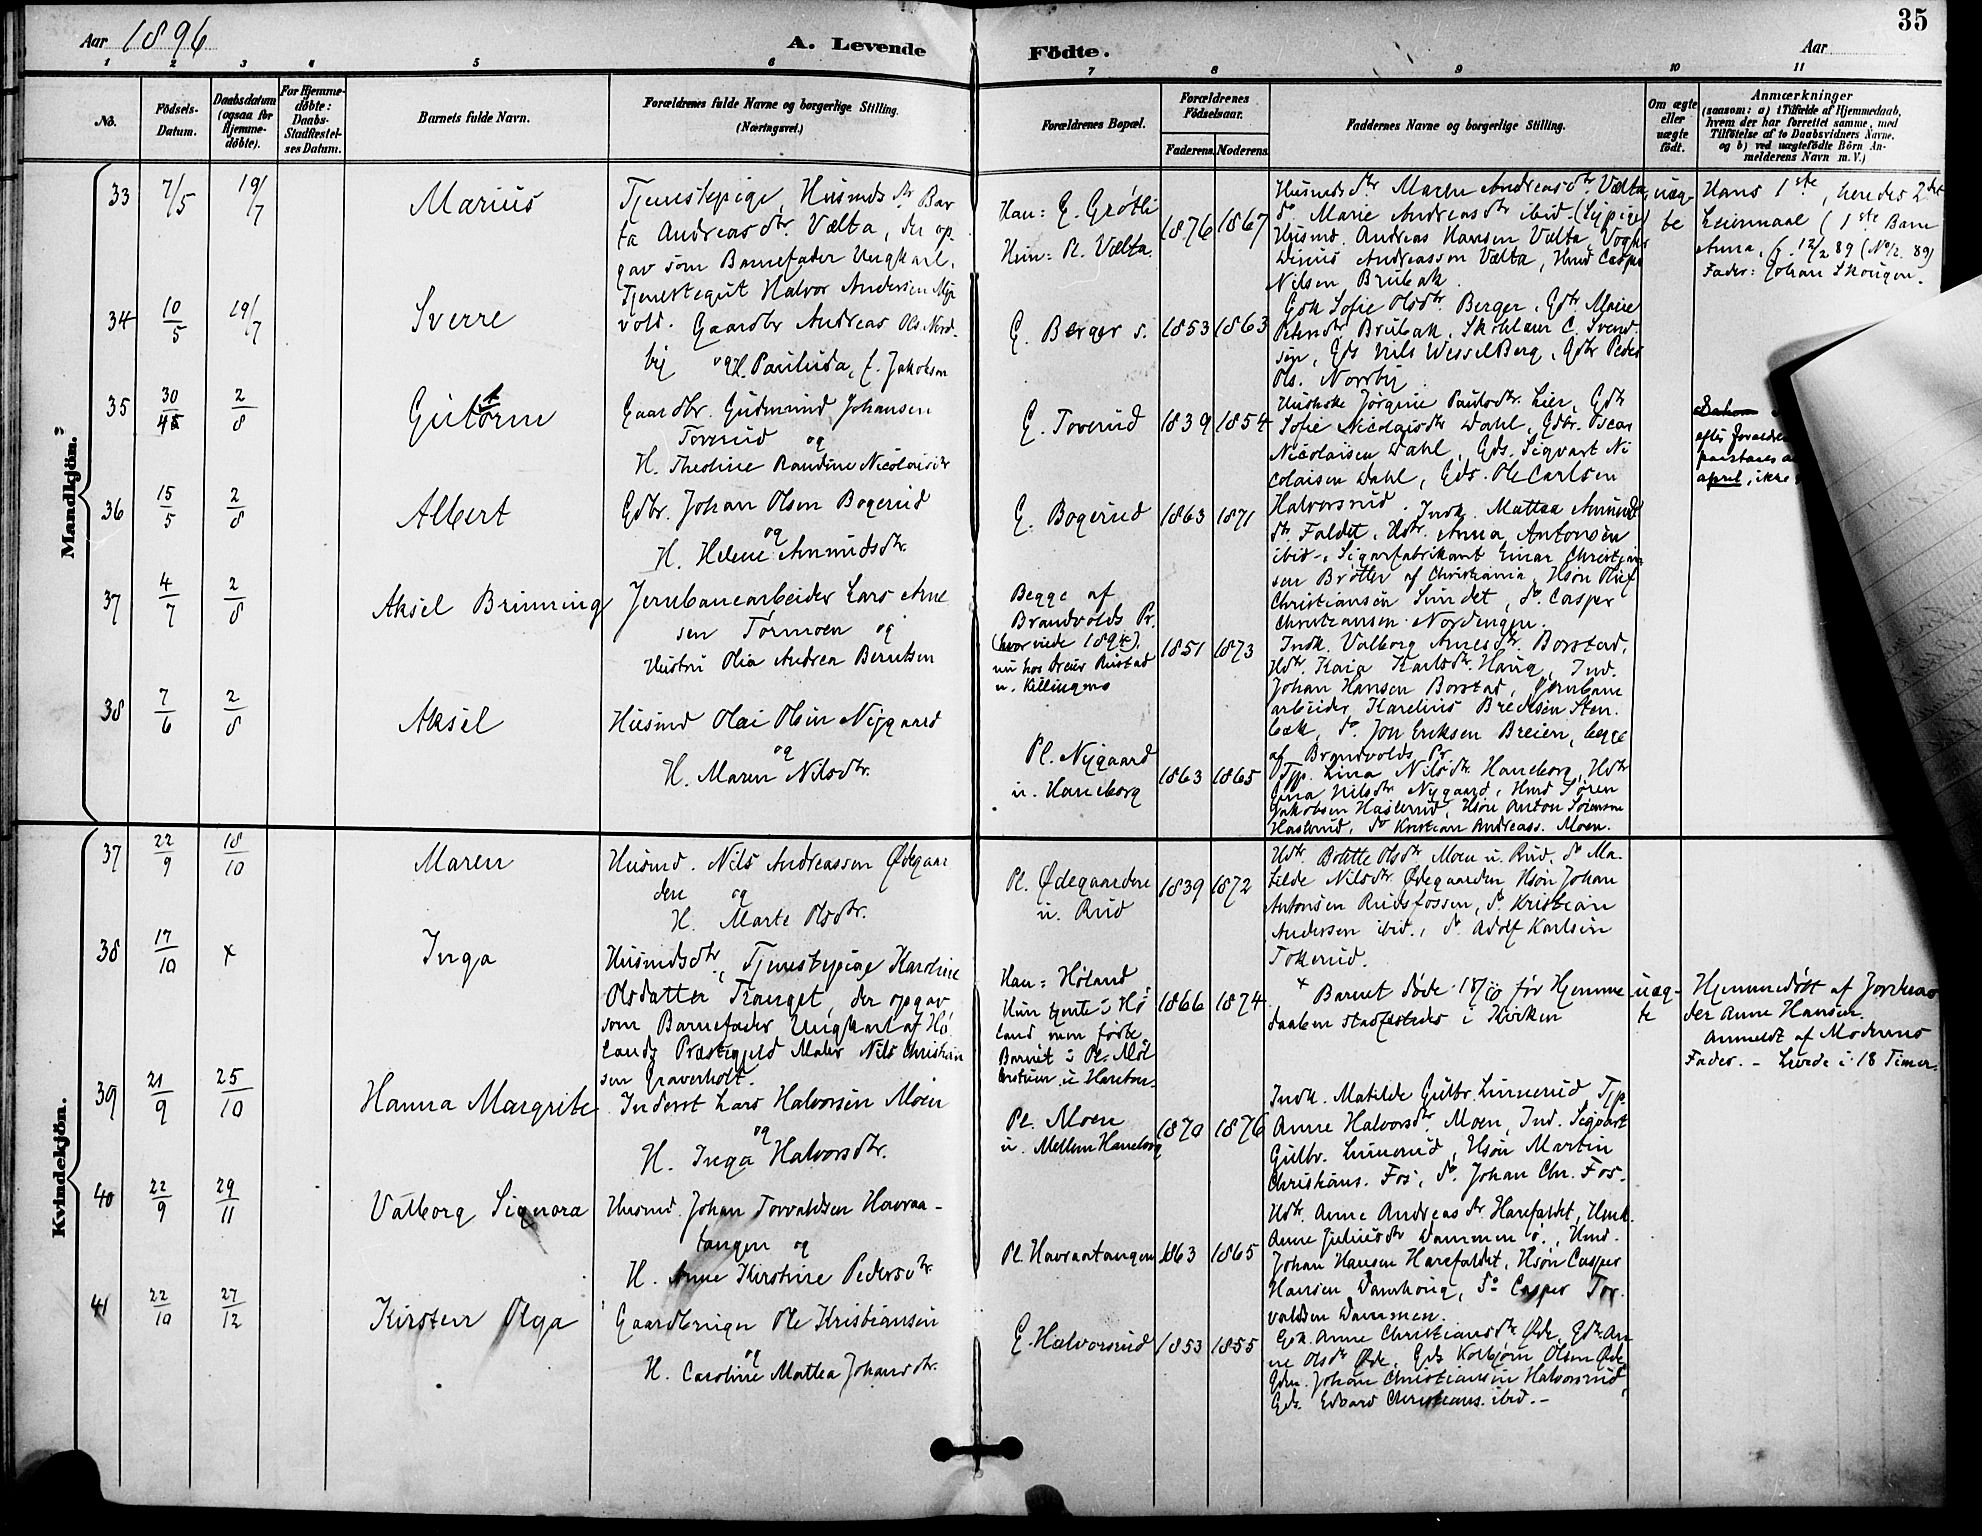 35
Aar 1896
A. Levende
Födte.
Aar
1 2 3 4 5 6 7 8 9 10 11
No.
Födsels-
Datum.
Daabsdatum
(ogsaa for
Hjemme-
döbte).
For Hjemme-
döbte:
Daabs-
Stadfæstel-
ses Datum.
Barnets fulde Navn.
Forældrenes fulde Navne og borgerlige Stilling.
(Næringsvei.)
Forældrenes Bopæl.
Forældrenes
Födselsaar.
Faderens. Moderens.
Faddernes Navne og borgerlige Stilling.
Om ægte
eller
uægte
födt.
Anmærkninger
(saasom: a) i Tilfælde af Hjemmedaab,
hvem der har forrettet samme, med
Tilföielse af to Daabsvidners Navne,
og b) ved uægtefödte Börn An-
melderens Navn m. V.)
Mandkjön.
33
7/5
19/7
Marius
Tjenestepige, Husmds dtr. Bar
ta Andreas dtr. Vælta, der op
gav som Barnefader Ungkarl,
Tjenestegut Halvor Andersen Myr
vold.
Han: E. Grøtli
Hun: Pl. Vælta.
1876
1867
Husmds dtr Maren Andreas dtr. Vælta,
do. Marie Andreas dtr ibid.
Husmd. Andreas Hansen Vælta,
Andreassen Vælta, Hmd Casper
Nilsen Brubak.
uæg-
te
Hans 1ste, hendes 2det
Leiermaal (1ste Barn
Anna, f. 12/2 89 (No 12. 89)
Fader: Johan Skougen.
34
10/5
19/7
Sverre
Gaardbr Andreas Ols. Nord-
by
og H. Paulida, f. Jakobsen
E. Berger s.
1853
1863
Gdk Sofie Olsdtr. Berger, Gdtr Marie
Petersdtr Brubak, Skolelærer C. Svend-
sen, Gds Nils Wessel Berg, Gdbr Peder
Ols. Norrby
35
30/4
2/8
Gutorm
Gaardbr. Gudmund Johansen
Toverud og
H. Theoline Randine Nicolaisdtr
E. Toverud
1839
1854
Hushske Jørgine Paulsdtr. Lier, Gdtr
Sofie Nicolaisdtr Dahl, Gdbr. Oscar
Nicolaisen Dahl, Gds. Sigvart Ni
colaisen Dahl, Gds. Ole Carlsen
Halvorsrud.
efter
april, ikke
36
15/5
2/8
Albert
Gdbr. Johan Olsen Bogerud
og
H. Helene Amundsdtr.
E. Bogerud
1863
1871
Indk. Mattea Amund
dtr. Faldet, Hdtr. Anna Antonsen
ibid., Sigarfabrikant Einar Christian
sen Brøtter af Christiania, Hsøn Oluf
Christiansen Sundet, do. Casper
Christiansen Nordengen.
37
4/7
2/8
Aksel Brünning
Jernbanearbeider Lars Arne
sen Tørmoen og
Hustru Olia Andrea Berntsen
Begge af
Brandvolds Pr.
(hvor viede 1894).
nu hos Dreier Rustad
u. Killingmo
1851
1873
Indk. Valborg Arnesdtr Borstad,
Hdtr. Kaia Karlsdtr. Haug, Ind.
Johan Hansen Borstad, Jernbane
arbeider Karelius Bredesen Sten
bæk, do. Jon Eriksen Breien, begge
af Brandvolds Pr.
38
7/6
2/8
Aksel
Husmd Olai Olsen Nygaard
og
H. Maren Nilsdtr.
Pl. Nygaard
u. Haneborg
1863
1865
Tjp. Lina Nilsdtr. Haneborg, Hdtr
Gina Nilsdtr Nygaard, Hmd Søren
Jakobsen Haslerud, Hsøn Anton Sørensen
Haslerud, do Kristian Andreass. Moen.
Kvindekjön.
37
22/9
18/10
Maren
Husmd. Nils Andreassen Ødegaar
den og
H. Marte Olsdtr.
Pl. Ødegaarden
u. Rud
1839
1872
Hdtr. Olsdtr Moen u. Rud, do Ma-
tilde Nilsdtr Ødegaarden Hsøn Johan
Antonsen Rudsfossen, do. Kristian
Andersen ibid., do. Adolf Karlsen
Tokerud.
38
17/10
x
Inga
Husmdsdtr, Tjenestepige Karoline
Olsdatter Tranget, der opgav
som Barnefader Ungkarl af Hø
lands Præstegjeld Maler Nils Christian
sen Graverholt.
Han: Høland
Hun tjente i Hø
land, men fødte
Barnet i Pl.
1866
1874
x Barnet døde 18/10 før Hjemme
daaben stadfæstedes i Kirken
uæg-
te
Hjemmedøbt af Jordmo
der Anne Hansen.
Anmeldt af Moderens
Fader. – Levede i 18 Timer.
39
21/9
25/10
Hanna Margrete
Inderst Lars Halvorsen Moen
og
H. Inga Halvorsdtr.
Pl. Moen
u. Mellem Haneborg
1870
1876
Indk. Matilde Gulbr. Linnerud Tjp.
Anne Halvorsdtr. Moen, Ind. Sigvart
Gulbr. Linnerud, Hsøn Martin
Christians. Fos, do. Johan Chr. Fos.
40
22/9
29/11
Valborg Signora
Husmd. Johan Torvaldsen Havraa-
tangen og
H. Anne Kirstine Pedersdtr.
Pl. Havraatangen
1863
1865
Hdtr. Anne Andreasdtr Harefaldet, Hmk.
Anne Juliusdtr Dammen ø., Hmd.
Johan Hansen Harefaldet, Hsøn Casper
Hansen Damhaug, do Casper Tor
valdsen Dammen.
41
22/10
27/12
Kirsten Olga
Gaardbruger Ole Kristiansen
og
H. Caroline Mattea Johansdtr.
E. Halvorsrud
1853
1855
Gdk. Anne Christiansdtr. Øde, Gdtr. An-
ne Olsdtr Øde, Gds Kolbjørn Olsen Øde,
Gdm. Johan Christiansen Halvorsrud,
Gds. Edvard Christians. ibid. –